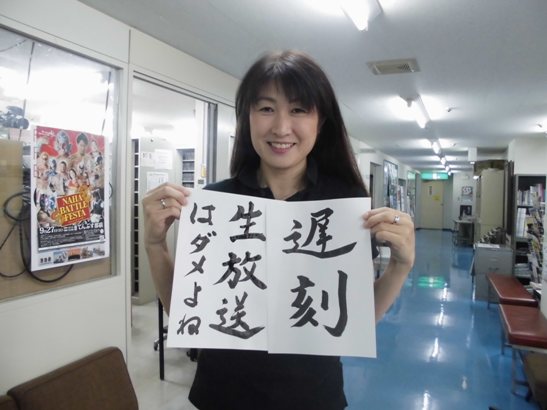 遅刻
生放送
はダメよね
NAHA BATTLE
FESTA
9/27